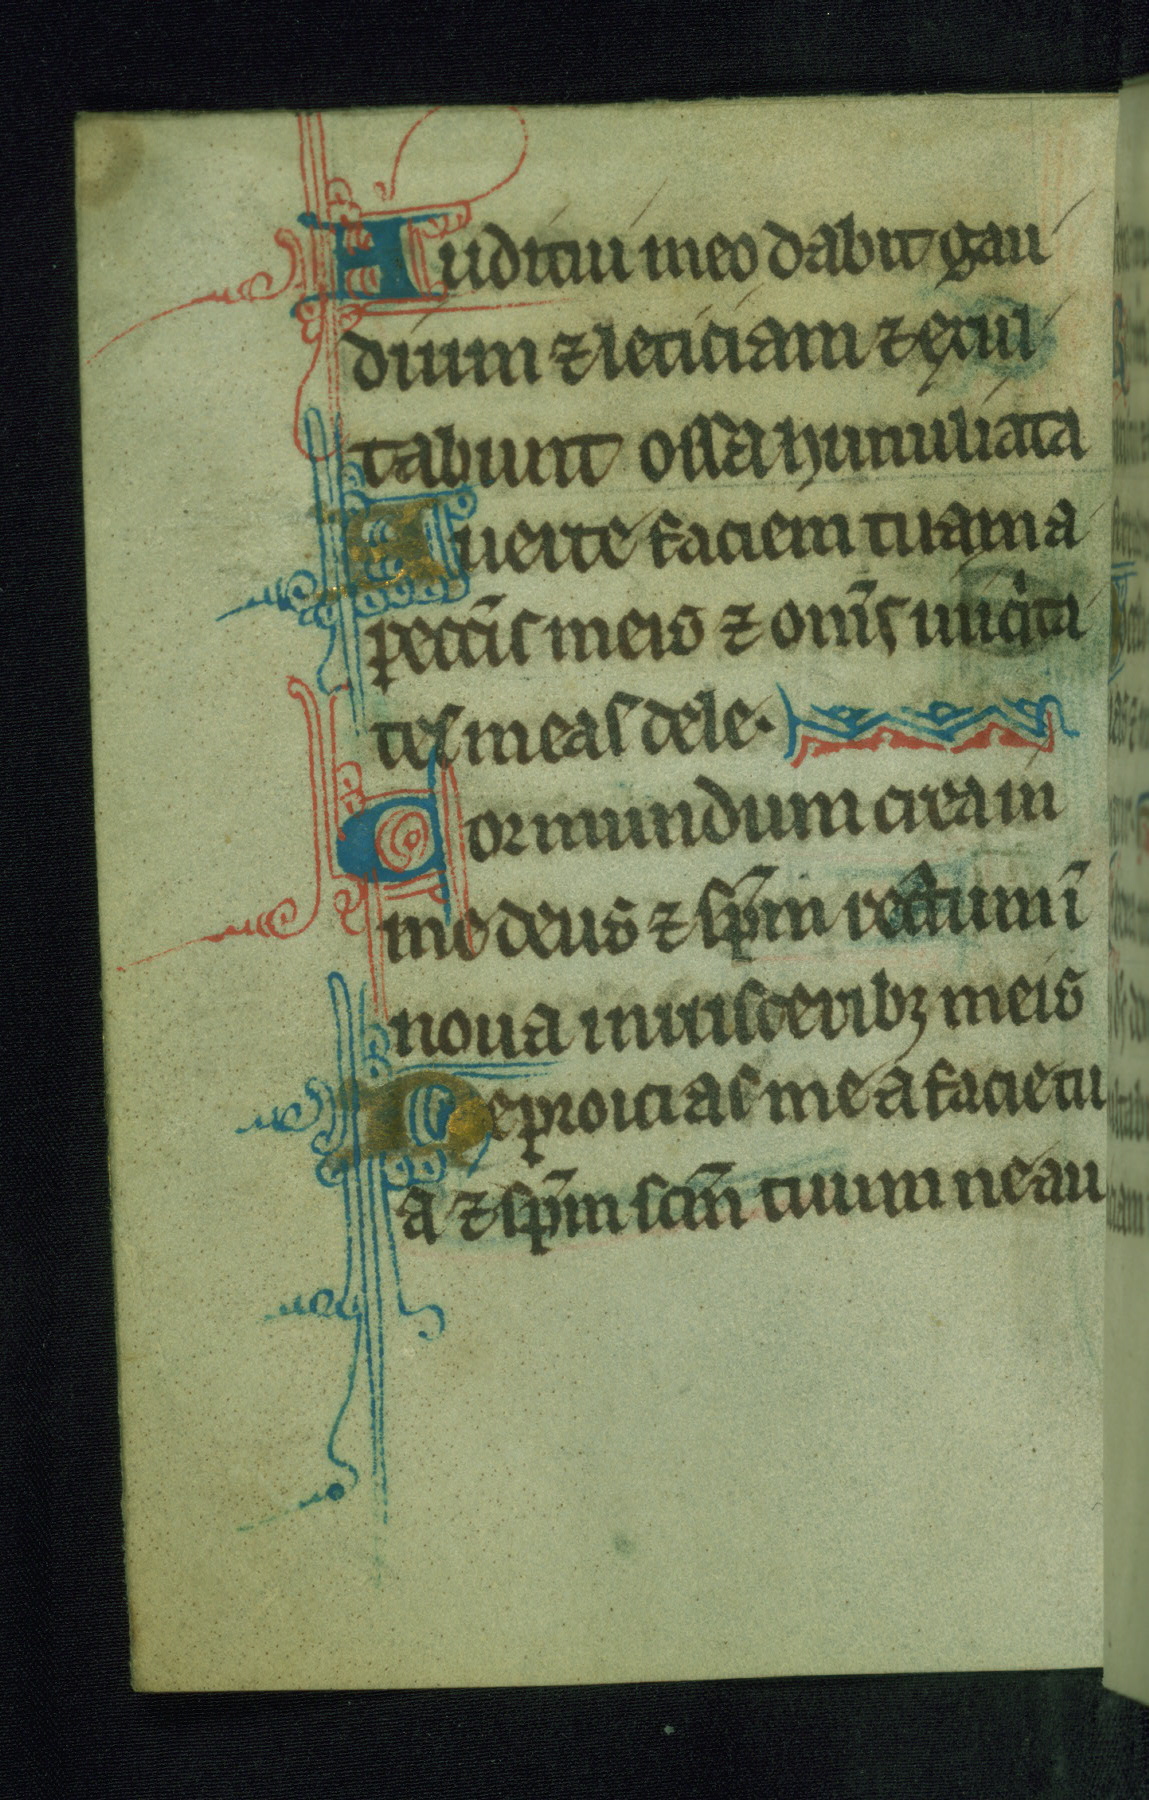 Auditui meo dabit gau
dium ⁊ leticiam ⁊ exul
tabunt ossa humiliata
Auerte faciem tuam a
pecc̄is meis ⁊ om̄s iniq̇ta
tes meas dele.
Cor mundum crea in
me deus ⁊ sp̄m rectum ī
noua in uisceribꝫ meis
Ne proicias me a facie tu
a ⁊ sp̄m sc̄m tuum ne au